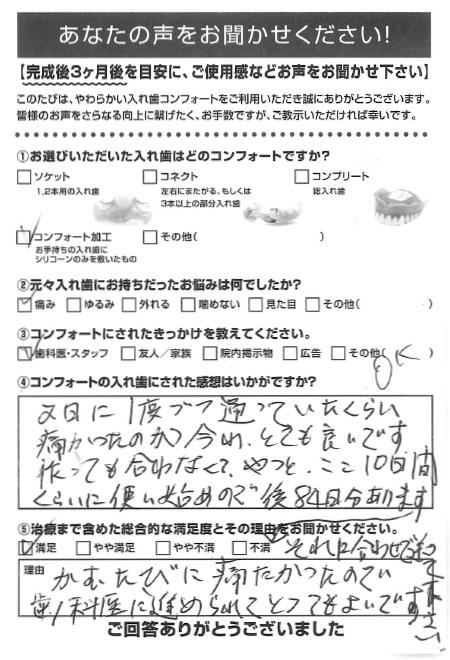 あなたの声をお聞かせください!
【完成後3ヶ月後を目安に、ご使用感などお声をお聞かせ下さい】
このたびは、やわらかい入れ歯コンフォートをご利用いただき誠にありがとうございます。
皆様のお声をさらなる向上に繋げたく、お手数ですが、ご教示いただければ幸いです。
①お選びいただいた入れ歯はどのコンフォートですか?
□ソケット □コネクト □コンプリート
1,2本用の入れ歯 左右にまたがる、もしくは 総入れ歯
3本以上の部分入れ歯
☑コンフォート加工 □その他( )
お手持ちの入れ歯に
シリコーンのみを敷いたもの
②元々入れ歯にお持ちだったお悩みは何でしたか?
☑痛み □ゆるみ □外れる □噛めない □見た目 □その他( )
③コンフォートにされたきっかけを教えてください。
☑歯科医・スタッフ □友人/家族 □院内掲示物 □広告 □その他( )
OK
④コンフォートの入れ歯にされた感想はいかがですか?
2日に1度づつ通っていたくらい
痛かったのが今わ、とても良いです
作っても合わなくて、やっと、ここ10日間
くらいに使い始めので後84日分あります
⑤治療まで含めた総合的な満足度とその理由をお聞かせください。
☑満足 □やや満足 □やや不満 □不満 それに合わせて
理由 かむたびに痛たかったのでい
歯科医に進められてとってもよいです
ご回答ありがとうございました